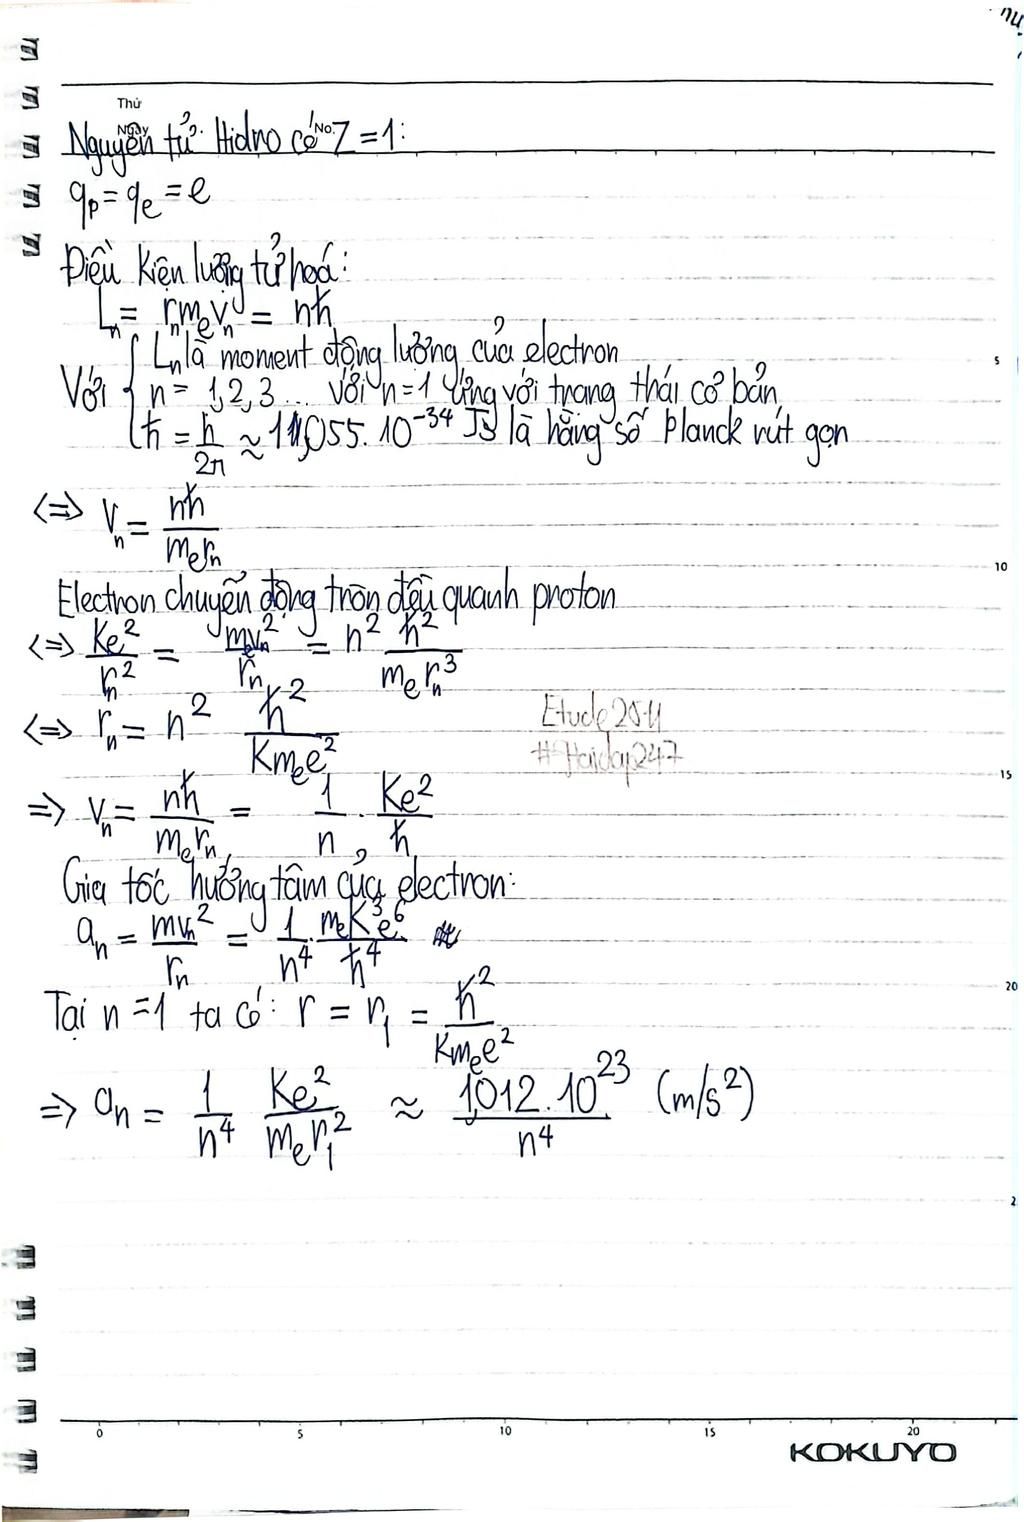 Thứ
Ngày No.
Nguyên tử Hidro có Z = 1:
qₚ = qₑ = e
Điều kiện lượng tử hoá:
Lₙ = rₙmₑvₙ = nħ
Với { Lₙ là moment động lượng của electron
n = 1, 2, 3... với n = 1 ứng với trạng thái cơ bản
ħ = h/2π ≈ 1,055.10⁻³⁴ Js là hằng số Planck rút gọn
<=> vₙ = nħ/mₑrₙ
Electron chuyển động tròn đều quanh proton
<=> Ke²/rₙ² = mₑvₙ²/rₙ = n² ħ²/mₑrₙ³
<=> rₙ = n² ħ²/Kmₑe²
Etude2511
#Hoidap247
=> vₙ = nħ/mₑrₙ = 1/n . Ke²/ħ
Gia tốc hướng tâm của electron:
aₙ = mvₙ²/rₙ = 1/n⁴ . mₑK³e⁶/ħ⁴
Tại n = 1 ta có: r = r₁ = ħ²/Kmₑe²
=> aₙ = 1/n⁴ Ke²/mₑr₁² ≈ 1,012.10²³/n⁴ (m/s²)
5
10
15
20
2
0 5 10 15 20
KOKUYO